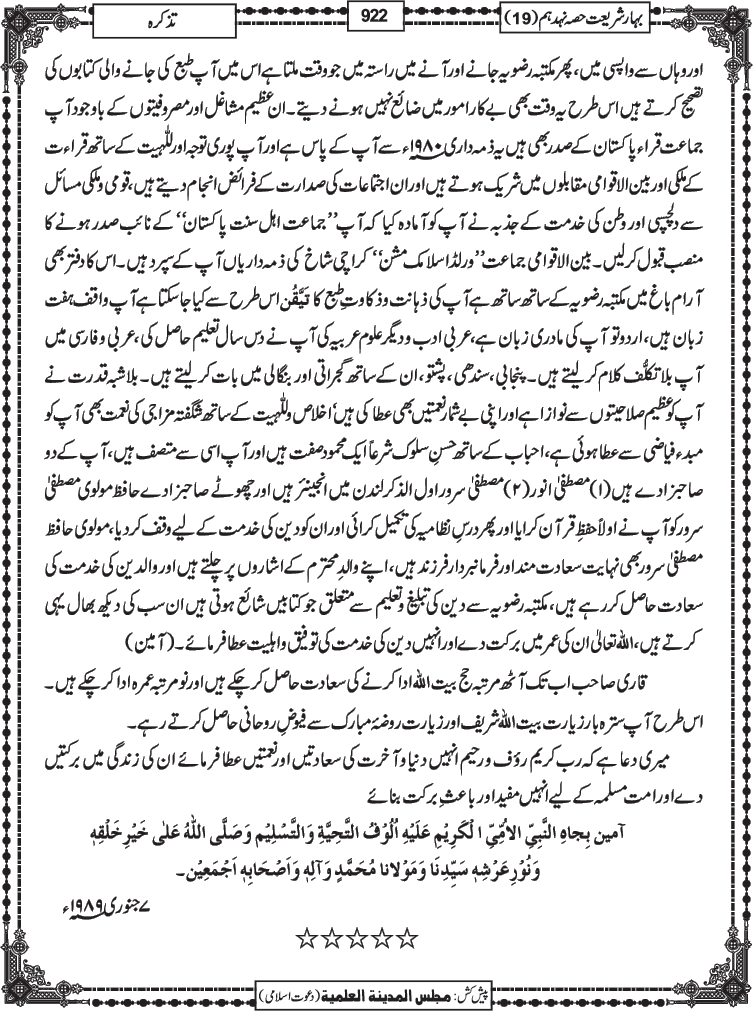 بہارِ شریعت حصہ نہدہم (19)
922
تذکرہ
اور وہاں سے واپسی میں، پھر مکتبہ رضویہ جانے اور آنے میں راستہ میں جو وقت ملتا ہے اس میں آپ طبع کی جانے والی کتابوں کی
تصحیح کرتے ہیں اس طرح یہ وقت بھی بے کار امور میں ضائع نہیں ہونے دیتے۔ ان عظیم مشاغل اور مصروفیتوں کے باوجود آپ
جماعت قراء پاکستان کے صدر بھی ہیں یہ ذمہ داری ۱۹۸۰ء سے آپ کے پاس ہے اور آپ پوری توجہ اور للّٰہیت کے ساتھ قراءت
کے ملکی اور بین الاقوامی مقابلوں میں شریک ہوتے ہیں اور ان اجتماعات کی صدارت کے فرائض انجام دیتے ہیں، قومی و ملکی مسائل
سے دلچسپی اور وطن کی خدمت کے جذبہ نے آپ کو آمادہ کیا کہ آپ ’’جماعت اہل سنت پاکستان‘‘ کے نائب صدر ہونے کا
منصب قبول کرلیں۔ بین الاقوامی جماعت ’’ورلڈ اسلامک مشن‘‘ کراچی شاخ کی ذمہ داریاں آپ کے سپرد ہیں۔ اس کا دفتر بھی
آرام باغ میں مکتبہ رضویہ کے ساتھ ساتھ ہے آپ کی ذہانت و ذکاوتِ طبع کا تَیَقُّن اس طرح سے کیا جاسکتا ہے آپ واقف ہفت
زبان ہیں، اردو تو آپ کی مادری زبان ہے، عربی ادب و دیگر علوم عربیہ کی آپ نے دس سال تعلیم حاصل کی، عربی و فارسی میں
آپ بلا تکلُّف کلام کرلیتے ہیں۔ پنجابی، سندھی، پشتو، ان کے ساتھ گجراتی اور بنگالی میں بات کرلیتے ہیں۔ بلاشبہ قدرت نے
آپ کو عظیم صلاحیتوں سے نوازا ہے اور اپنی بے شمار نعمتیں بھی عطا کی ہیں اخلاص و للّٰہیت کے ساتھ شگفتہ مزاجی کی نعمت بھی آپ کو
مبدء فیاضی سے عطا ہوئی ہے، احباب کے ساتھ حسنِ سلوک شرعاً ایک محمود صفت ہیں اور آپ اسی سے متصف ہیں، آپ کے دو
صاحبزادے ہیں (۱) مصطفیٰ انور (۲) مصطفیٰ سرور اول الذکر لندن میں انجینئر ہیں اور چھوٹے صاحبزادے حافظ مولوی مصطفیٰ
سرور کو آپ نے اولاً حفظِ قرآن کرایا اور پھر درسِ نظامیہ کی تکمیل کرائی اور ان کو دین کی خدمت کے لیے وقف کردیا، مولوی حافظ
مصطفیٰ سرور بھی نہایت سعادت مند اور فرمانبردار فرزند ہیں، اپنے والدِ محترم کے اشاروں پر چلتے ہیں اور والدین کی خدمت کی
سعادت حاصل کر رہے ہیں، مکتبہ رضویہ سے دین کی تبلیغ و تعلیم سے متعلق جو کتابیں شائع ہوتی ہیں ان سب کی دیکھ بھال یہی
کرتے ہیں، اللہ تعالیٰ ان کی عمر میں برکت دے اور انہیں دین کی خدمت کی توفیق و اہلیت عطا فرمائے۔ (آمین)
قاری صاحب اب تک آٹھ مرتبہ حج بیت اللہ ادا کرنے کی سعادت حاصل کرچکے ہیں اور نو مرتبہ عمرہ ادا کرچکے ہیں۔
اس طرح آپ سترہ بار زیارت بیت اللہ شریف اور زیارت روضۂ مبارک سے فیوضِ روحانی حاصل کرتے رہے۔
میری دعا ہے کہ رب کریم رؤف و رحیم انہیں دنیا و آخرت کی سعادتیں اور نعمتیں عطا فرمائے ان کی زندگی میں برکتیں
دے اور امت مسلمہ کے لیے انہیں مفید اور باعثِ برکت بنائے
آمین بِجاہِ النَّبِیِّ الاُمِّیِّ الْکَرِیْمِ عَلَیْہِ اُلُوْفُ التَّحِیَّۃِ وَالتَّسْلِیْمِ وَصَلَّی اللّٰہُ عَلٰی خَیْرِ خَلْقِہٖ
وَنُوْرِ عَرْشِہٖ سَیِّدِنَا وَمَوْلَانا مُحَمَّدٍ وَآلِہٖ وَاَصْحَابِہٖ اَجْمَعِیْن۔
۷ جنوری ۱۹۸۹ء
☆☆☆☆☆
پیش کش: مجلس المدینۃ العلمیۃ (دعوت اسلامی)